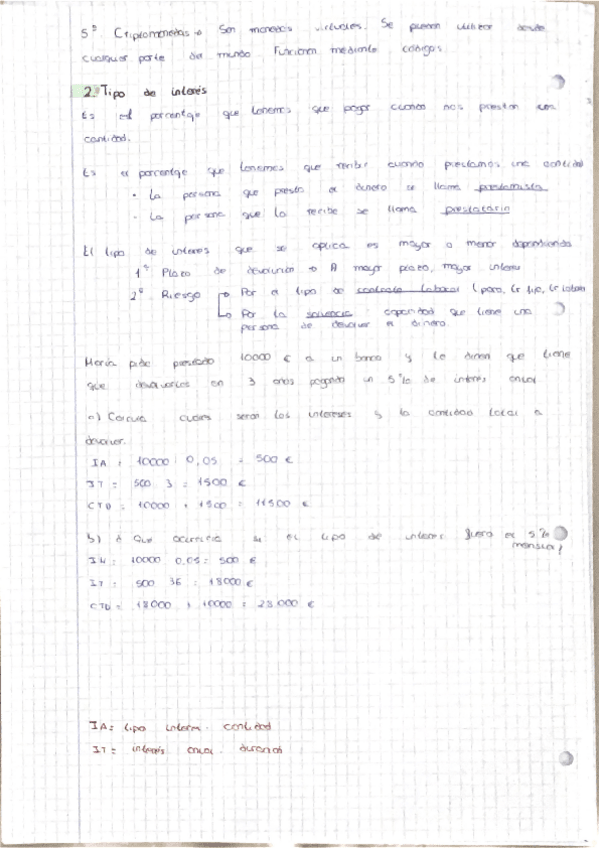 5º Criptomonedas → Son monedas virtuales. Se pueden utilizar desde
cualquier parte del mundo. Funcionan mediante códigos.
2. Tipo de interés
Es el porcentaje que tenemos que pagar cuando nos prestan una
cantidad.
Es el porcentaje que tenemos que recibir cuando prestamos una cantidad
· La persona que presta el dinero se llama prestamista
· La persona que lo recibe se llama prestatario
El tipo de interes que se aplica es mayor o menor dependiendo
1º Plazo de devolución → A mayor plazo, mayor interes
2º Riesgo → Por el tipo de contrato laboral (paro, 
→ Por la solvencia : capacidad que tiene una
persona de devolver el dinero.
María pide prestado 10000 € a un banco y le dicen que tiene
que devolverlos en 3 años pagando un 5% de interés anual
a) Calcula cuáles serán los intereses y la cantidad total a
devolver.
IA = 10000 · 0,05 = 500 €
IT = 500 · 3 = 1500 €
CTD = 10000 + 1500 = 11500 €
b) ¿ Que ocurriría si el tipo de interes fuera el 5%
mensual?
IM = 10000 · 0,05 = 500 €
IT = 500 · 36 = 18000 €
CTD = 18000 + 10000 = 28.000 €
IA = tipo interes · cantidad
IT = interés anual ·